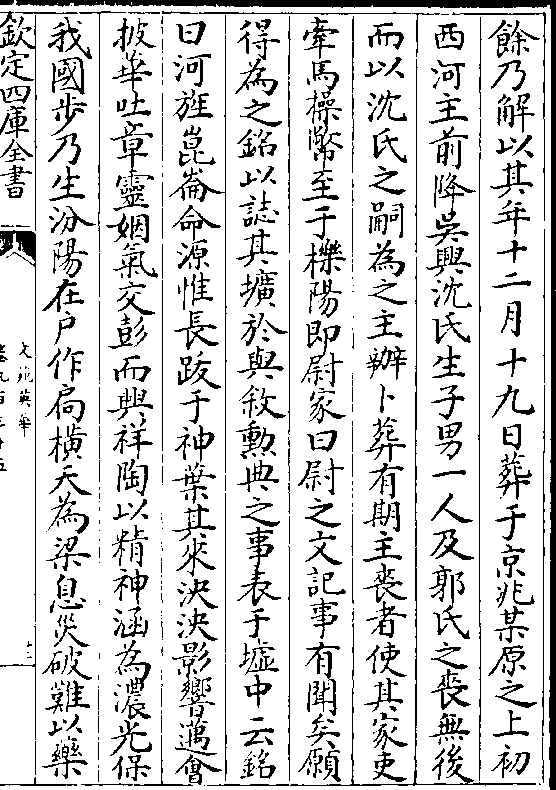 餘乃解以其年十二月十九日葬于京兆某原之上初
西河主前降吳興沈氏生子男一人及郭氏之喪無後
而以沈氏之嗣為之主辦卜葬有期主喪者使其家吏
牽馬操幣至于櫟陽即尉家曰尉之文記事有聞矣願
得為之銘以誌其擴於與敘勲典之事表于墟中云銘
曰河旌崑崙命源惟長跋于神葉其來決決影響遘會
披華吐章靈姻氣交彭而興祥陶以精神涵為濃光保
我國步乃生汾陽在戶作扃橫天為梁息災破難以藥
欽定四庫全書
文苑英華